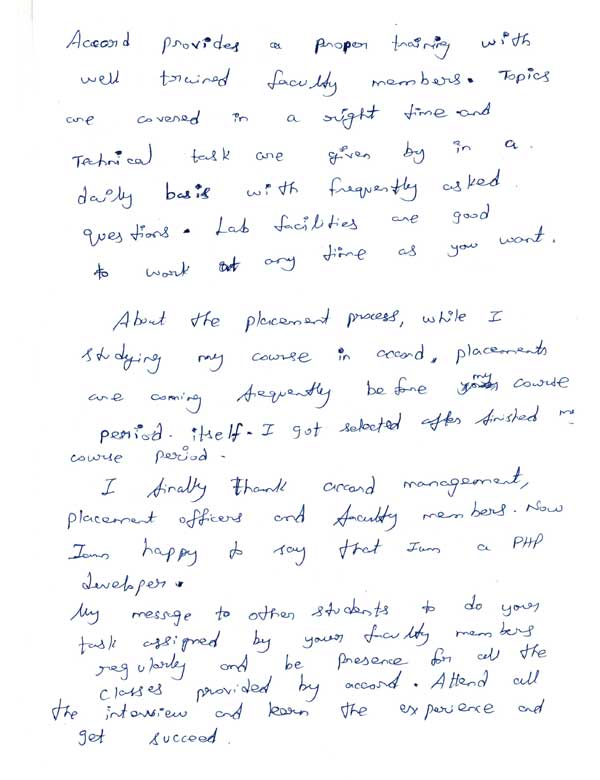 Accord provides a proper training with
well trained faculty members. Topics
are covered in a right time and
Technical task are given by in a
daily basis with frequently asked
questions. Lab facilities are good
to work at any time as you want.
About the placement process, while I
studying my course in accord, placements
are coming frequently before my course
period. itself. I got selected after finished my
course period.
I finally thank accord management,
placement officers and faculty members. Now
Iam happy to say that Iam a PHP
developer.
My message to other students to do your
task assigned by your faculty members
regularly and be presence for all the
classes provided by accord. Attend all
the interview and learn the experience and
get succeed.